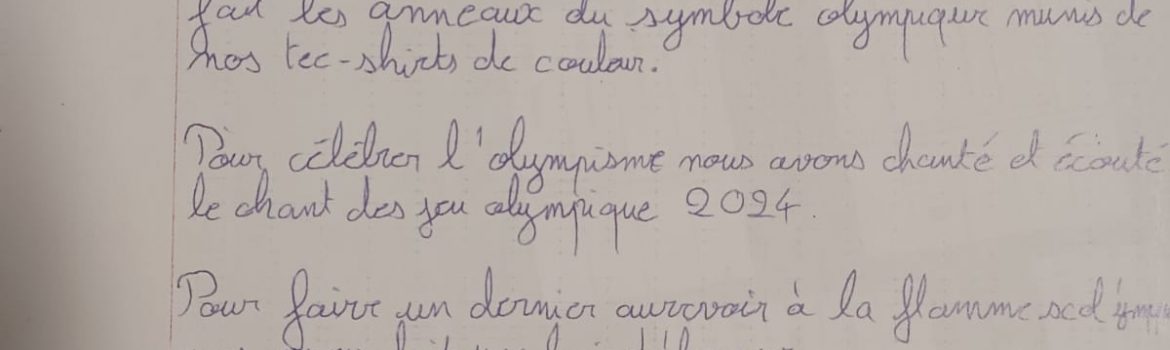 fait les anneaux du symbole olympique munis de
nos tee-shirts de couleur.
Pour célébrer l'olympisme nous avons chanté et écouté
le chant des jeu olympique 2024.
Pour faire un dernier aurevoir à la flamme